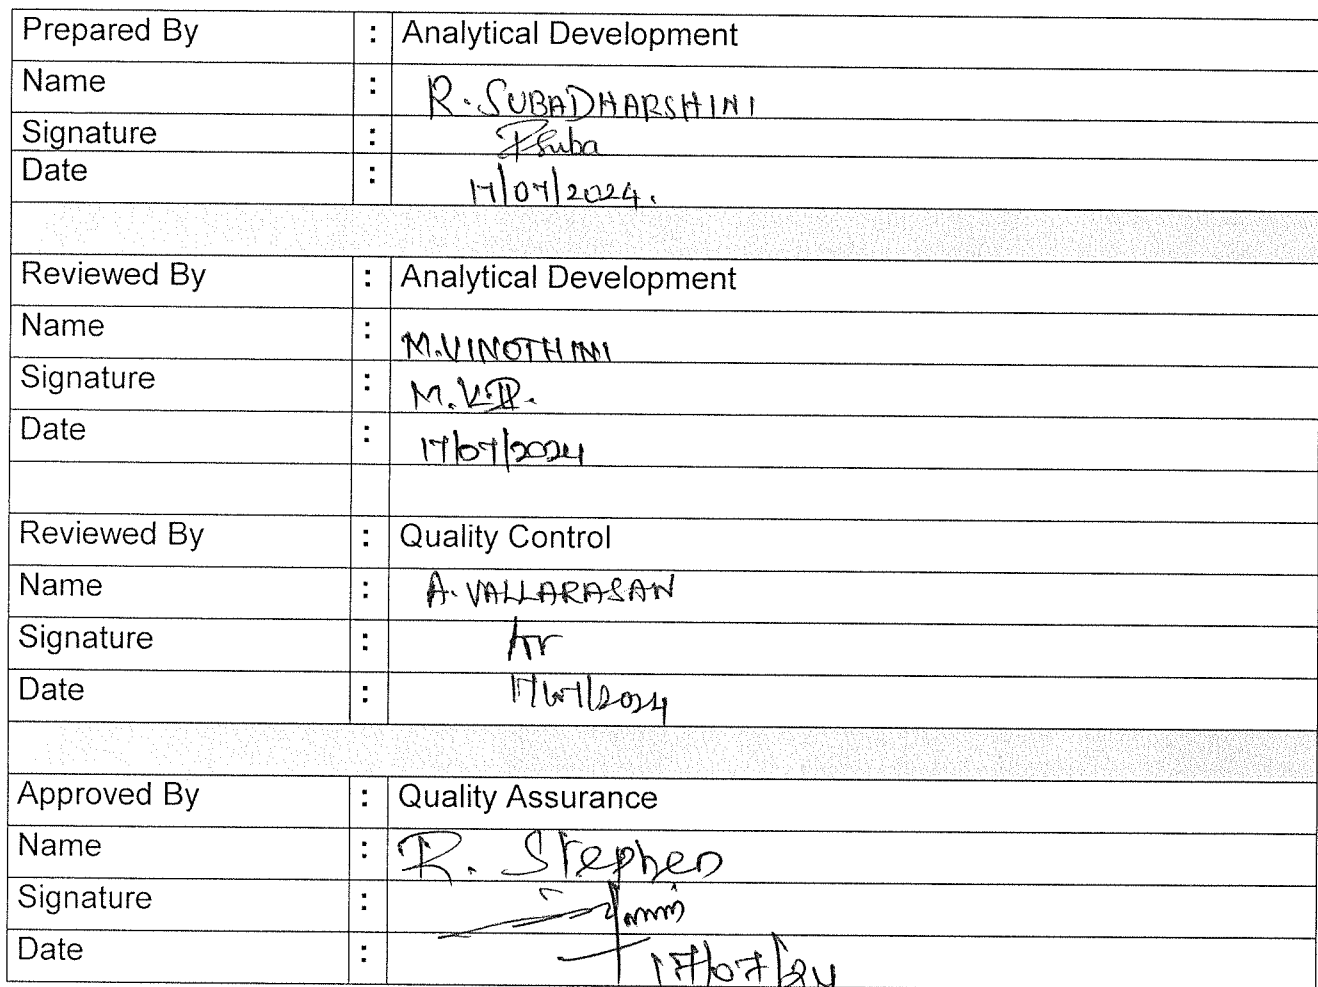 Prepared By : Analytical Development
Name : R. SUBADHARSHINI
Signature : RSuba
Date : 17/07/2024.
Reviewed By : Analytical Development
Name : M.VINOTHINI
Signature :
Date : 17/07/2024
Reviewed By : Quality Control
Name : A. VALLARASAN
Signature :
Date : 17/07/2024
Approved By : Quality Assurance
Name : R. Stephen
Signature :
Date : 17/07/24